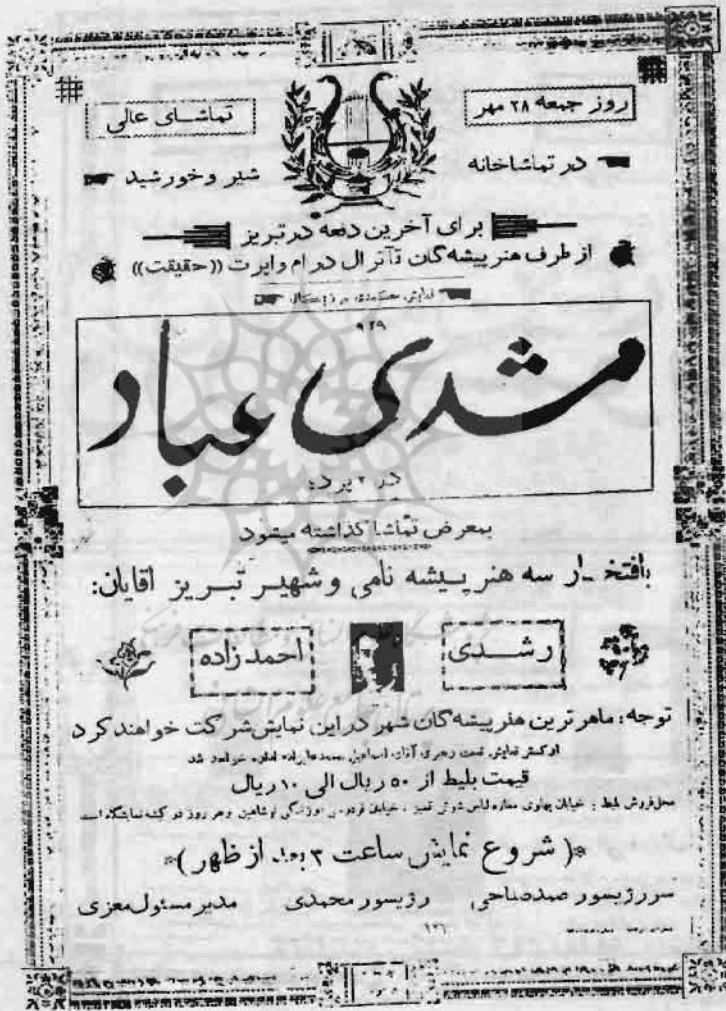 روز جمعه ۲۸ مهر
تماشای عالی
در تماشاخانه
شیر و خورشید
برای آخرین دفعه در تبریز
از طرف هنرپیشه گان تآترال درام واپرت ((حقیقت))
نمایش
۹۲۹
مشدی عباد
در ۲ پرده
بمعرض تماشا گذاشته میشود
بافتخار سه هنرپیشه نامی و شهیر تبریز آقایان:
رشدی
احمدزاده
توجه: ماهرترین هنرپیشه گان شهر در این نمایش شرکت خواهند کرد
ارکستر نمایش تحت رهبری آقای اسماعیل محمدعلیزاده اداره خواهد شد
قیمت بلیط از ۵۰ ریال الی ۱۰ ریال
محل فروش بلیط : خیابان پهلوی مغازه لباس شوئی تمیز ، خیابان فردوسی وهر روز در گیشه نمایشگاه است
*( شروع نمایش ساعت ۳ بعد از ظهر )*
سررژیسور صمدصباحی رژیسور محمدی مدیر مسئول معزی